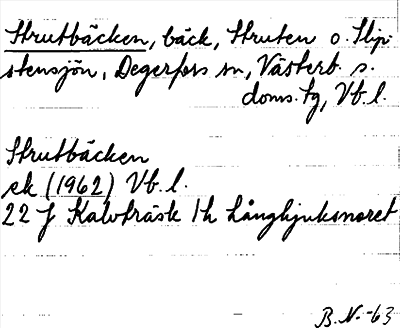 Strutbäcken, bäck, Struten o. Slip-
stensjön, Degerfors sn, Västerb. s.
doms. tg, Vb. l.
Strutbäcken
ek (1962) Vb. l.
22 J Kalvträsk 1h Långhjuksmoret
B. N. -63